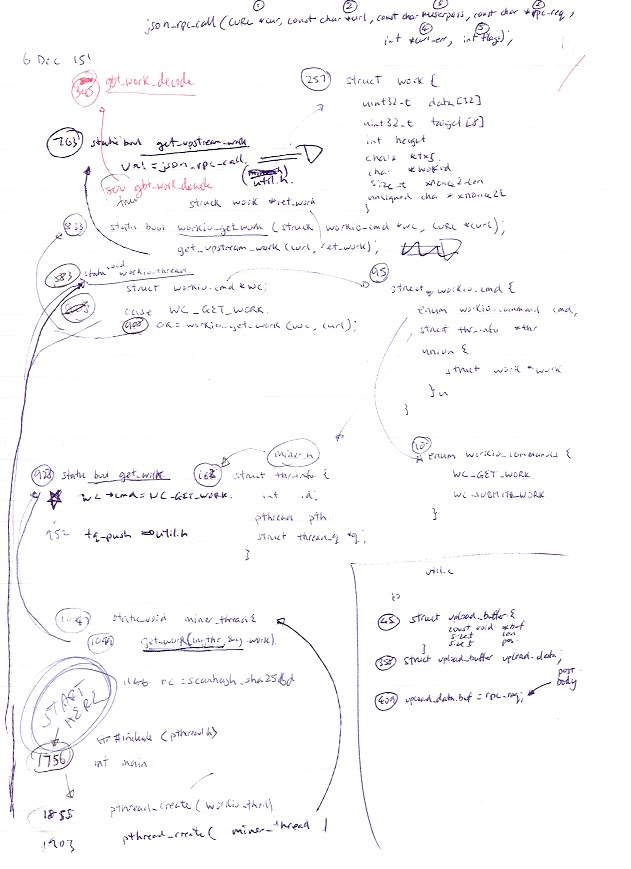 ① ② ③ ④
json_rpc_call (CURL *cur, const char *url, const char *userpass, const char *rpc_req,
⑤
int *curl_err, int flags);
6 Dec 15'
345 gbt_work_decode
257 struct work {
uint32_t data[32]
uint32_t target[8]
int height
char *txs
char *workid
size_t xnonce2_len
unsigned char *xnonce2
}
703 static bool get_upstream_work
val = json_rpc_call
util.h
gbt_work_decode
struct work *ret_work
833 static bool workio_get_work (struct workio_cmd *wc, CURL *curl);
get_upstream_work (curl, ret_work);
883 static void workio_thread
struct workio_cmd *wc;
case WC_GET_WORK.
900 ok = workio_get_work (wc, curl);
95 struct workio_cmd {
enum workio_command cmd,
struct thr_info *thr
union {
struct work *work
} u
}
miner.h
928 static bool get_work
wc→cmd = WC_GET_WORK.
952 tq_push ⇒ util.h
struct thr_info {
int id;
pthread pth
struct thread_q *q;
}
enum workio_commands {
WC_GET_WORK
WC_SUBMIT_WORK
}
1047 static void miner_thread {
get_work( work)
1146 rc = scanhash_sha256d
START HERE
#include (pthread.h)
1756 int main
1855 pthread_create (workio_thrd)
1903 pthread_create ( miner_thread )
util.c
45 struct upload_buffer {
const void *buf
size_t len
size_t pos
}
358 struct upload_buffer upload_data;
409 upload_data.buf = rpc_req;
post body